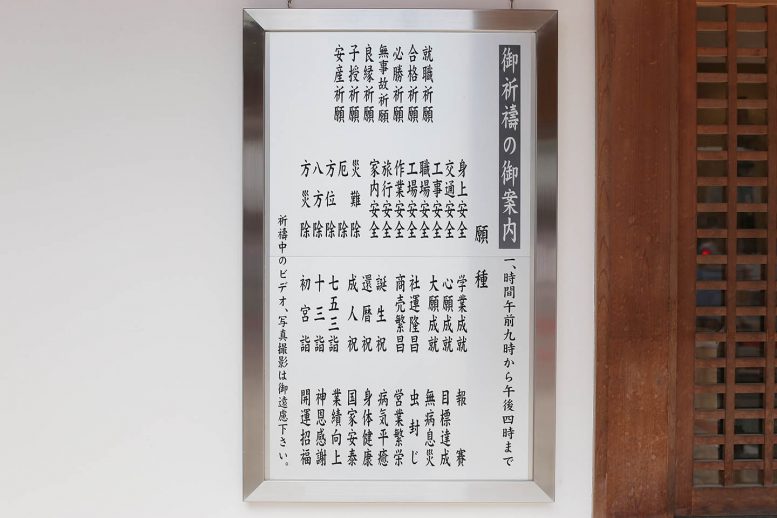 御祈禱の御案内
一、時間午前九時から午後四時まで
願種
就職祈願
合格祈願
必勝祈願
無事故祈願
良縁祈願
子授祈願
安産祈願
身上安全
交通安全
工事安全
職場安全
工場安全
作業安全
旅行安全
家内安全
災難除
厄除
方位除
八方除
方災除
学業成就
心願成就
大願成就
社運隆昌
商売繁昌
誕生祝
還暦祝
成人祝
七五三詣
十三詣
初宮詣
報賽
目標達成
無病息災
虫封じ
営業繁栄
病気平癒
身体健康
国家安泰
業績向上
神恩感謝
開運招福
祈禱中のビデオ、写真撮影は御遠慮下さい。